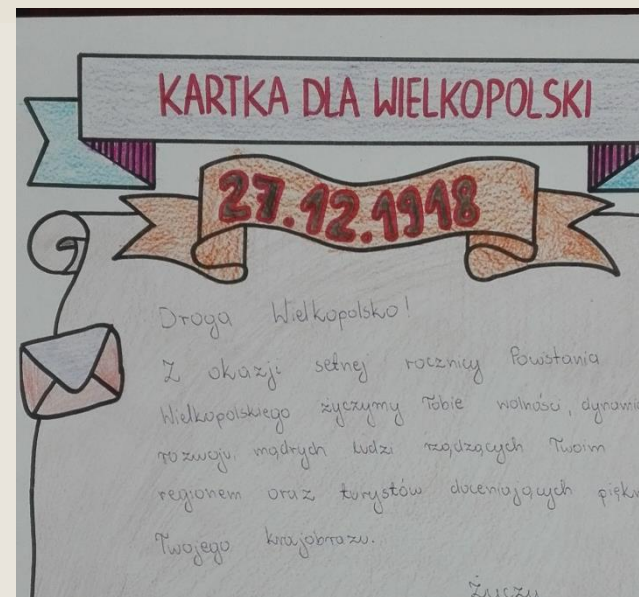 KARTKA DLA WIELKOPOLSKI
27.12.1918
Droga Wielkopolsko!
Z okazji setnej rocznicy Powstania
Wielkopolskiego życzymy Tobie wolności, dynami
rozwoju, mądrych ludzi rządzących Twoim
regionem oraz turystów doceniających pięk
Twojego krajobrazu.